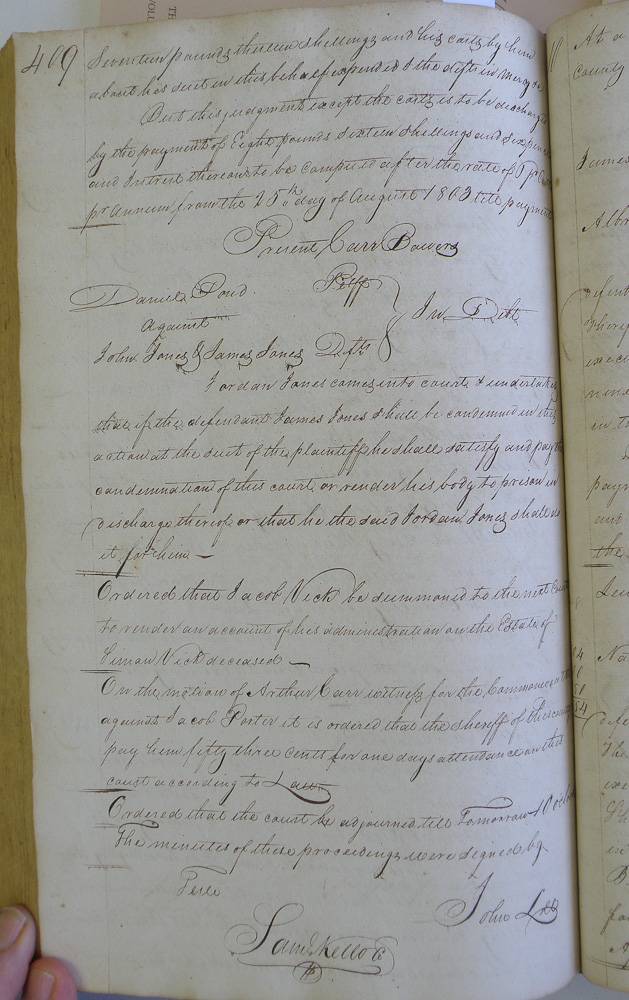 409
Seventeen pounds thirteen shillings and his costs by him
about his suit in this behalf expended & the defts in mercy &c
But this judgment except the costs is to be discharged
by the payment of Eight pounds sixteen shillings and six pence
and Interest thereon to be computed after the rate of 5 pr
pr annum from the 25th day of August 1803 till payment
Present Carr Bowers
Daniel Pond Plff
against In Debt
John Jones & James Jones Defts
Jordan Jones comes into court & undertakes
that if the defendant James Jones shall be condemned in this
action at the suit of the plaintiff he shall satisfy and pay the
condemnation of this court or render his body to prison in
discharge thereof or that he the said Jordan Jones shall do
it for him —
Ordered that Jacob Vick be summoned to the next Court
to render an account of his administration on the Estate of
Simon Vick deceased —
On the motion of Arthur Carr witness for the Commonwealth
against Jacob Porter it is ordered that the sheriff of this county
pay him fifty three cents for one days attendance on this
court according to Law
Ordered that the court be adjourned till Tomorrow 10 oClock
The minutes of these proceedings were signed by
Teste
John
Saml Kello C
At a
county
James
Albr